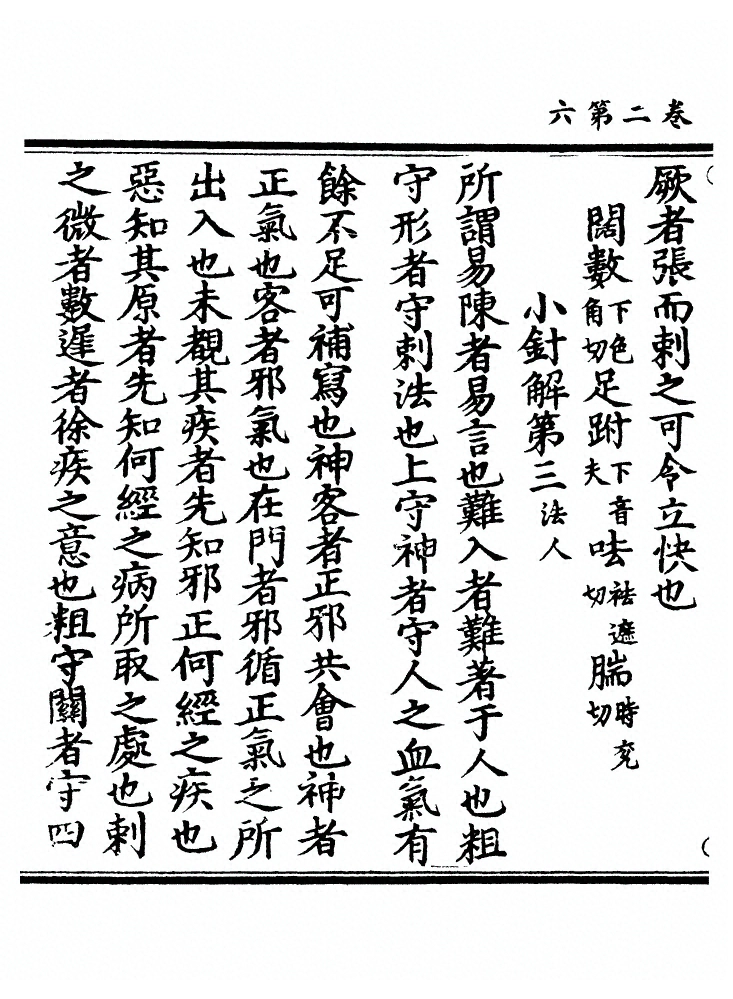 卷二第六
厥者張而刺之可令立快也
闊數下色角切足跗下音夫呿祛遮切腨時兖切
小針解第三法人
所謂易陳者易言也難入者難著于人也粗
守形者守刺法也上守神者守人之血氣有
餘不足可補寫也神客者正邪共會也神者
正氣也客者邪氣也在門者邪循正氣之所
出入也未覩其疾者先知邪正何經之疾也
惡知其原者先知何經之病所取之處也刺
之微者數遲者徐疾之意也粗守關者守四